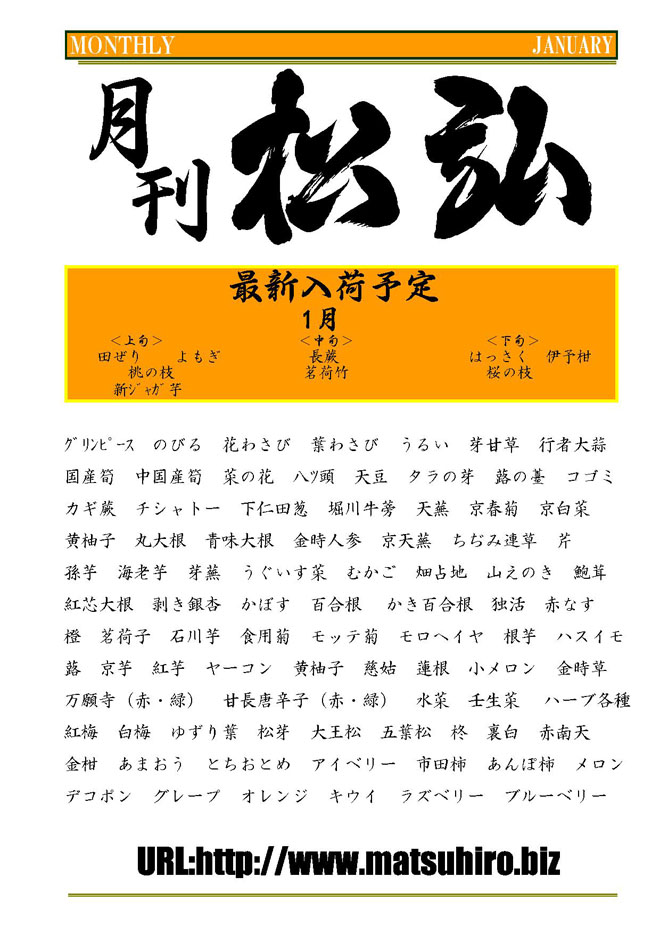 MONTHLY JANUARY
月刊 松弘
最新入荷予定
1月
＜上旬＞ ＜中旬＞ ＜下旬＞
田ぜり よもぎ 長蕨 はっさく 伊予柑
桃の枝 茗荷竹 桜の枝
新ｼﾞｬｶﾞ芋
ｸﾞﾘﾝﾋﾟｰｽ のびる 花わさび 葉わさび うるい 芽甘草 行者大蒜
国産筍 中国産筍 菜の花 八ツ頭 天豆 タラの芽 蕗の薹 コゴミ
カギ蕨 チシャトー 下仁田葱 堀川牛蒡 天蕪 京春菊 京白菜
黄柚子 丸大根 青味大根 金時人参 京天蕪 ちぢみ連草 芹
孫芋 海老芋 芽蕪 うぐいす菜 むかご 畑占地 山えのき 鮑茸
紅芯大根 剥き銀杏 かぼす 百合根 かき百合根 独活 赤なす
橙 茗荷子 石川芋 食用菊 モッテ菊 モロヘイヤ 根芋 ハスイモ
蕗 京芋 紅芋 ヤーコン 黄柚子 慈姑 蓮根 小メロン 金時草
万願寺（赤・緑） 甘長唐辛子（赤・緑） 水菜 壬生菜 ハーブ各種
紅梅 白梅 ゆずり葉 松芽 大王松 五葉松 柊 裏白 赤南天
金柑 あまおう とちおとめ アイベリー 市田柿 あんぽ柿 メロン
デコポン グレープ オレンジ キウイ ラズベリー ブルーベリー
URL:http://www.matsuhiro.biz